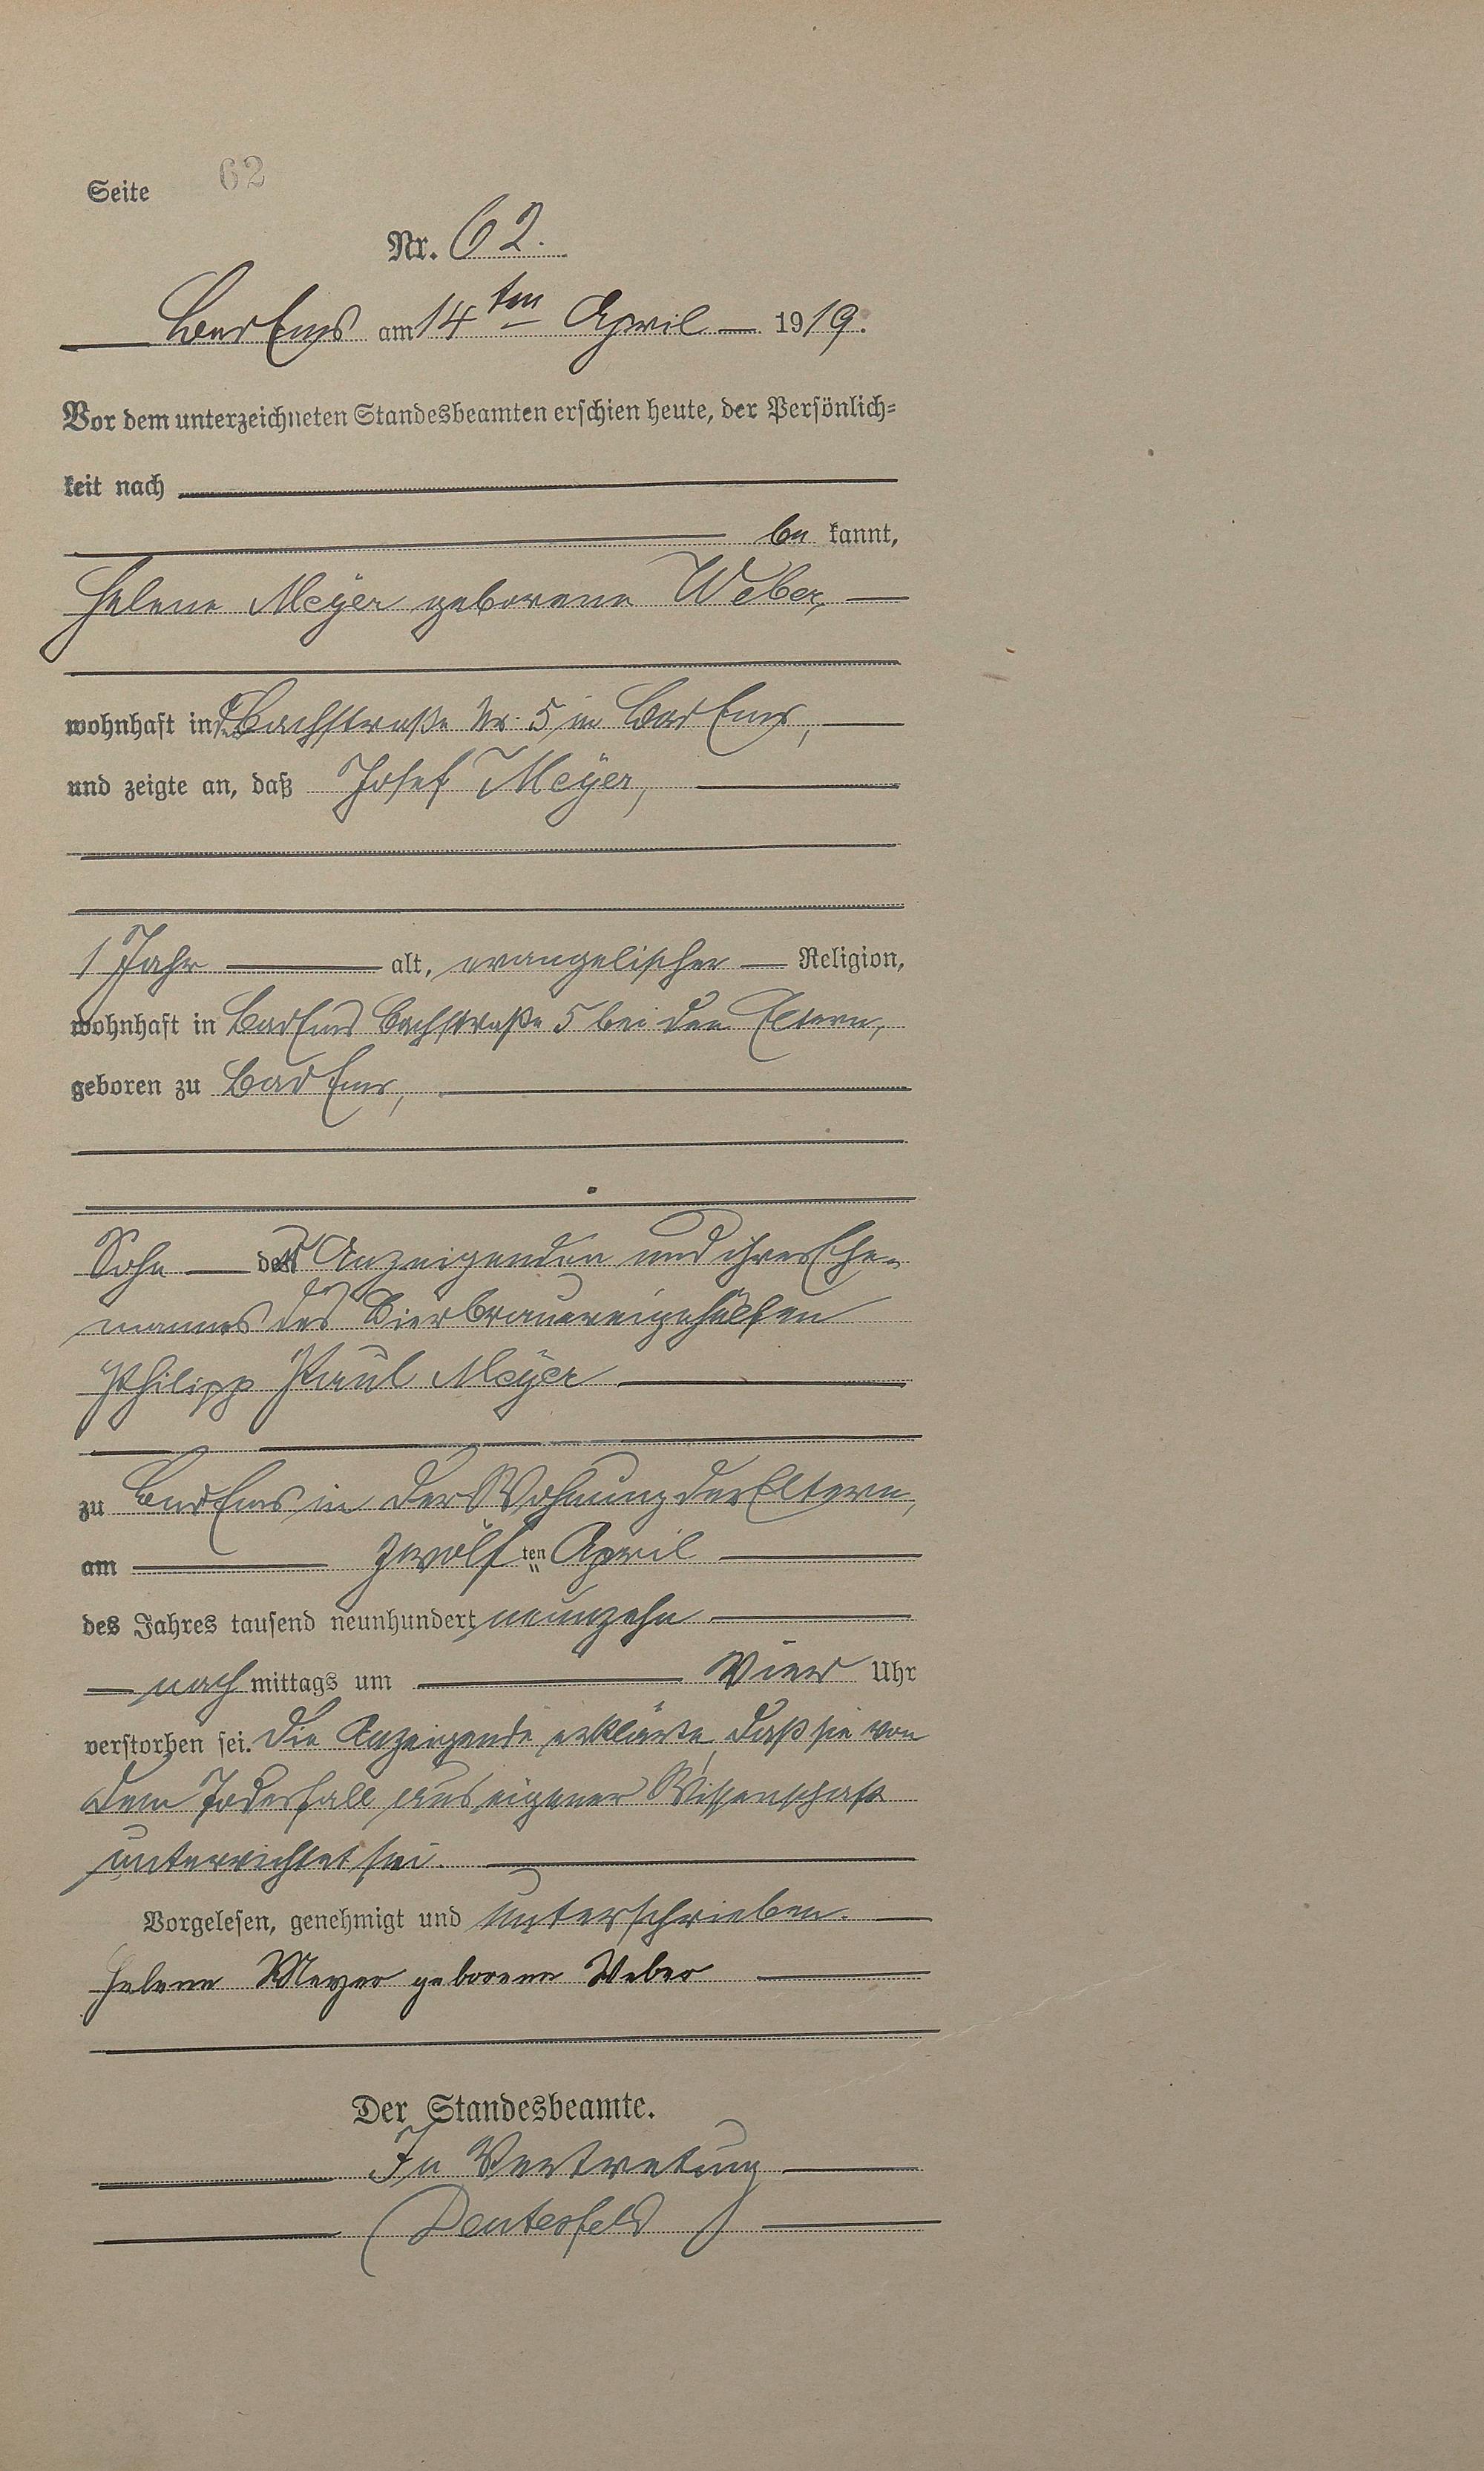 Seite 62
Nr. 62.
Bad Ems am 14ten April 1919.
Vor dem unterzeichneten Standesbeamten erschien heute, der Persönlich=
keit nach
be kannt,
Helene Meÿer geborene Weber,
wohnhaft in der Bachstraße Nr. 5 in Bad Ems,
und zeigte an, daß Josef Meÿer,
1 Jahr alt, evangelischer Religion,
wohnhaft in Bad Ems Bachstraße 5 bei den Eltern,
geboren zu Bad Ems,
Sohn der Anzeigenden und ihres Ehe-
mannes des Bierbrauereigehülfen
Philipp Paul Meÿer
zu Bad Ems in der Wohnung der Eltern,
am zwölf ten April
des Jahres tausend neunhundert neunzehn
nach mittags um vier Uhr
verstorben sei. Die Anzeigende erklärte, daß sie von
dem Todesfall aus eigener Wissenschaft
unterrichtet sei.
Vorgelesen, genehmigt und unterschrieben.
Helene Meyer geborene Weber
Der Standesbeamte.
In Vertretung